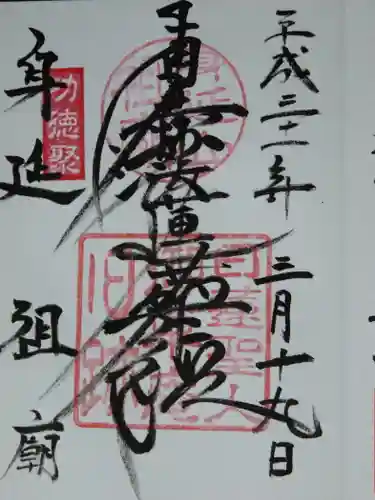 平成三十一年三月十九日
南無妙法蓮華経
日蓮聖人
旧跡
功徳聚
身延 祖廟